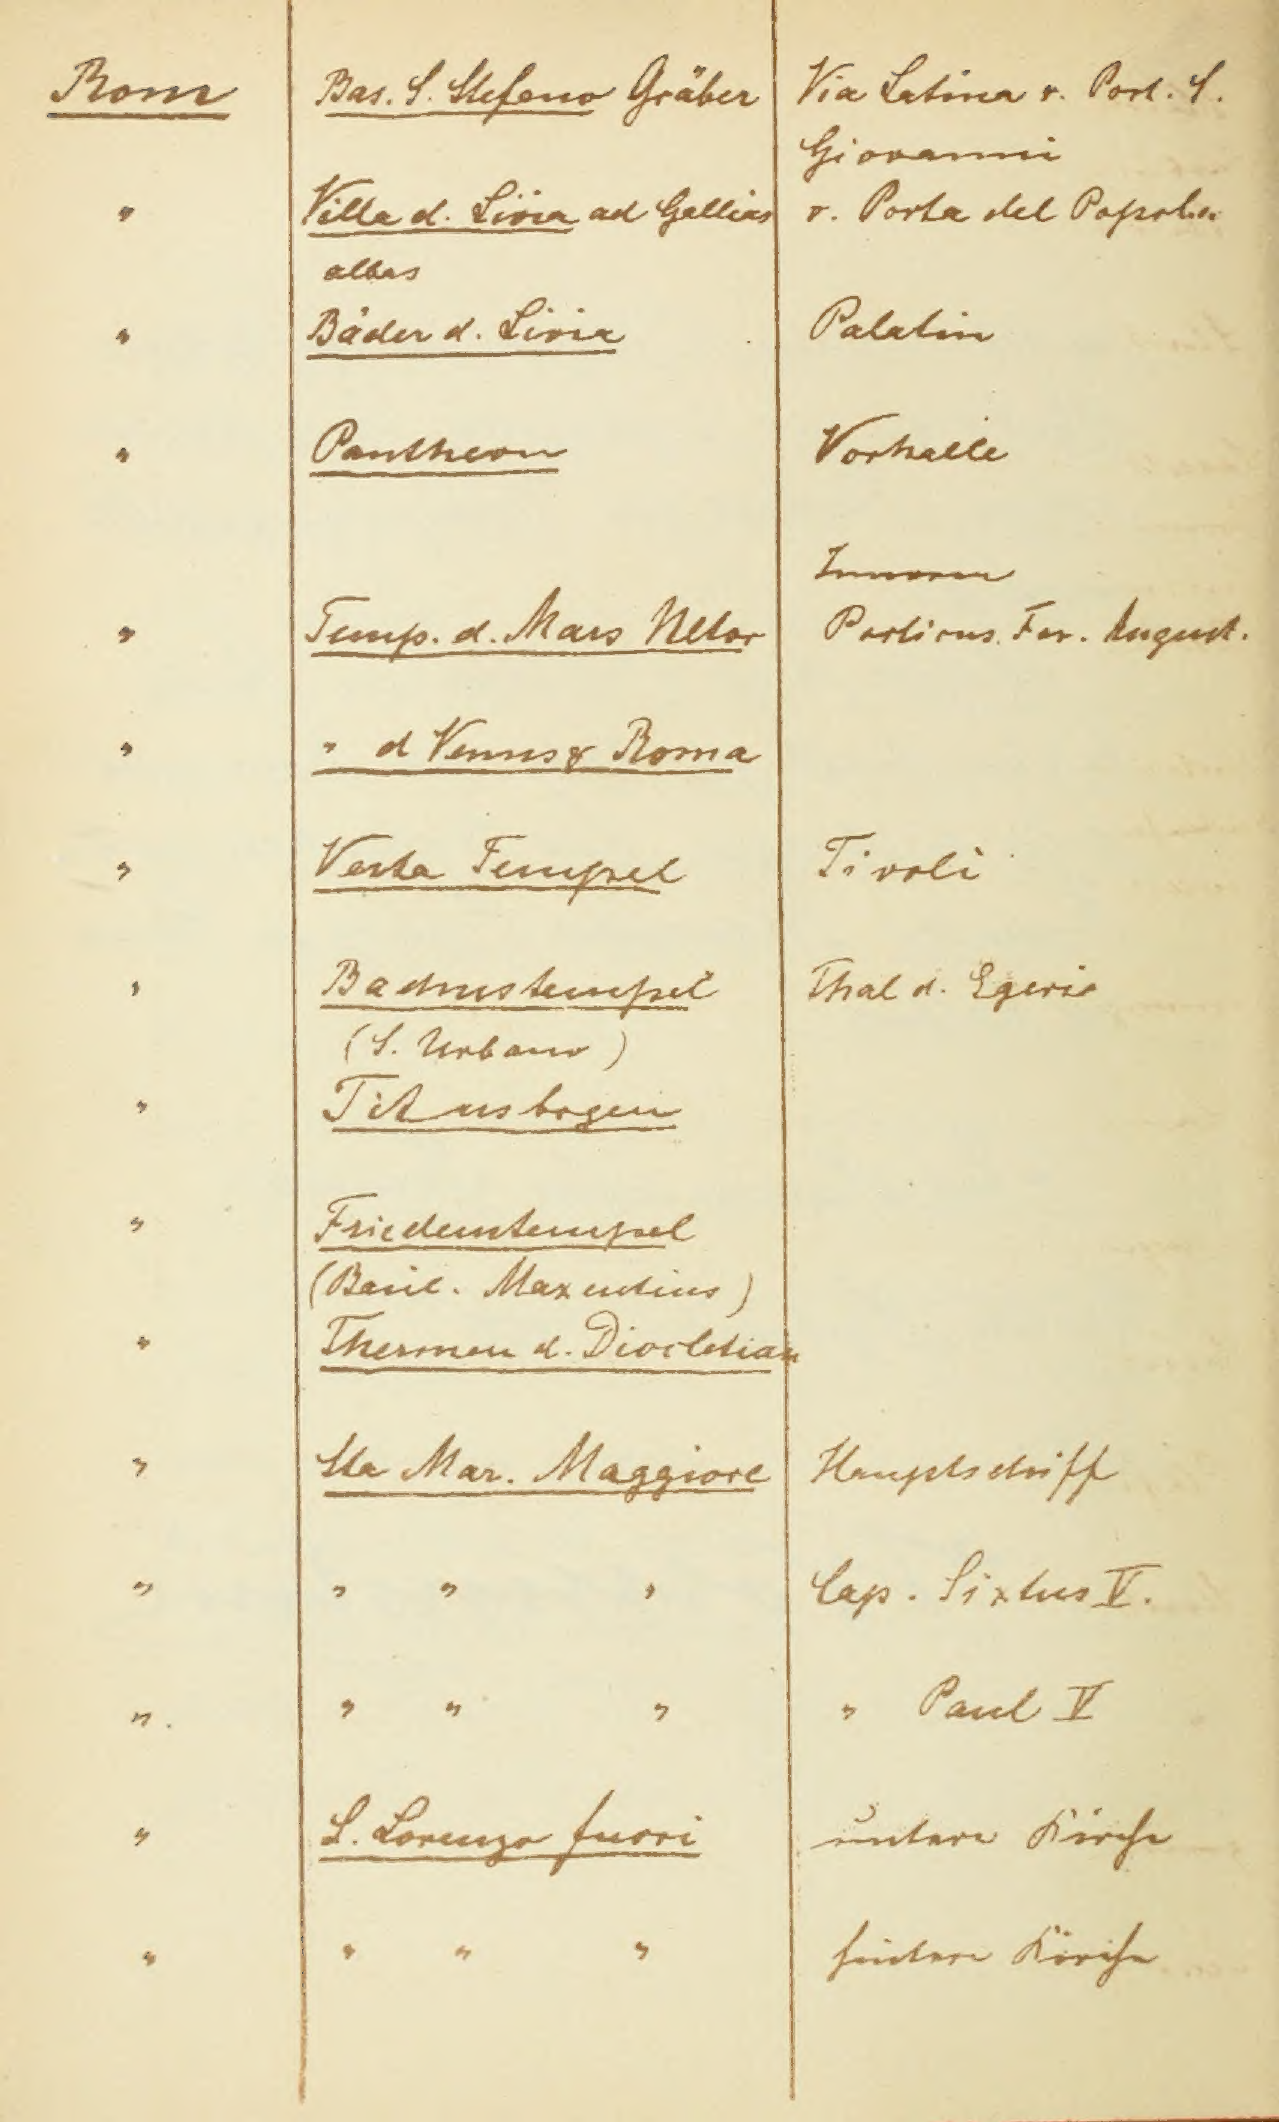 Rom Bas. S. Stefano Gräber Via Latina v. Port. S.
Giovanni
" Villa d. Livia ad Gallias v. Porta del Popolo
albas
" Bäder d. Livia Palatin
" Pantheon Vorhalle
Innern
" Temp. d. Mars Ultor Porticus. For. August.
" " d Venus & Roma
" Vesta Tempel Tivoli
" Bachustempel Thal d. Egeria
(S. Urbano)
" Titusbogen
" Friedenstempel
(Basil. Maxentius)
" Thermen d. Diocletian
" Sta Mar. Maggiore Hauptschiff
" " " " Cap. Sixtus V.
" " " " " Paul V
" S. Lorenzo fuori untere Kirche
" " " " hintere Kirche